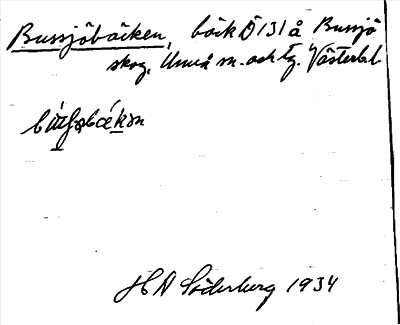 Bussjöbäcken, bäck Ö 131 å Bussjö
skog, Umeå sn. och tg. Västerbl
H A Söderberg 1934